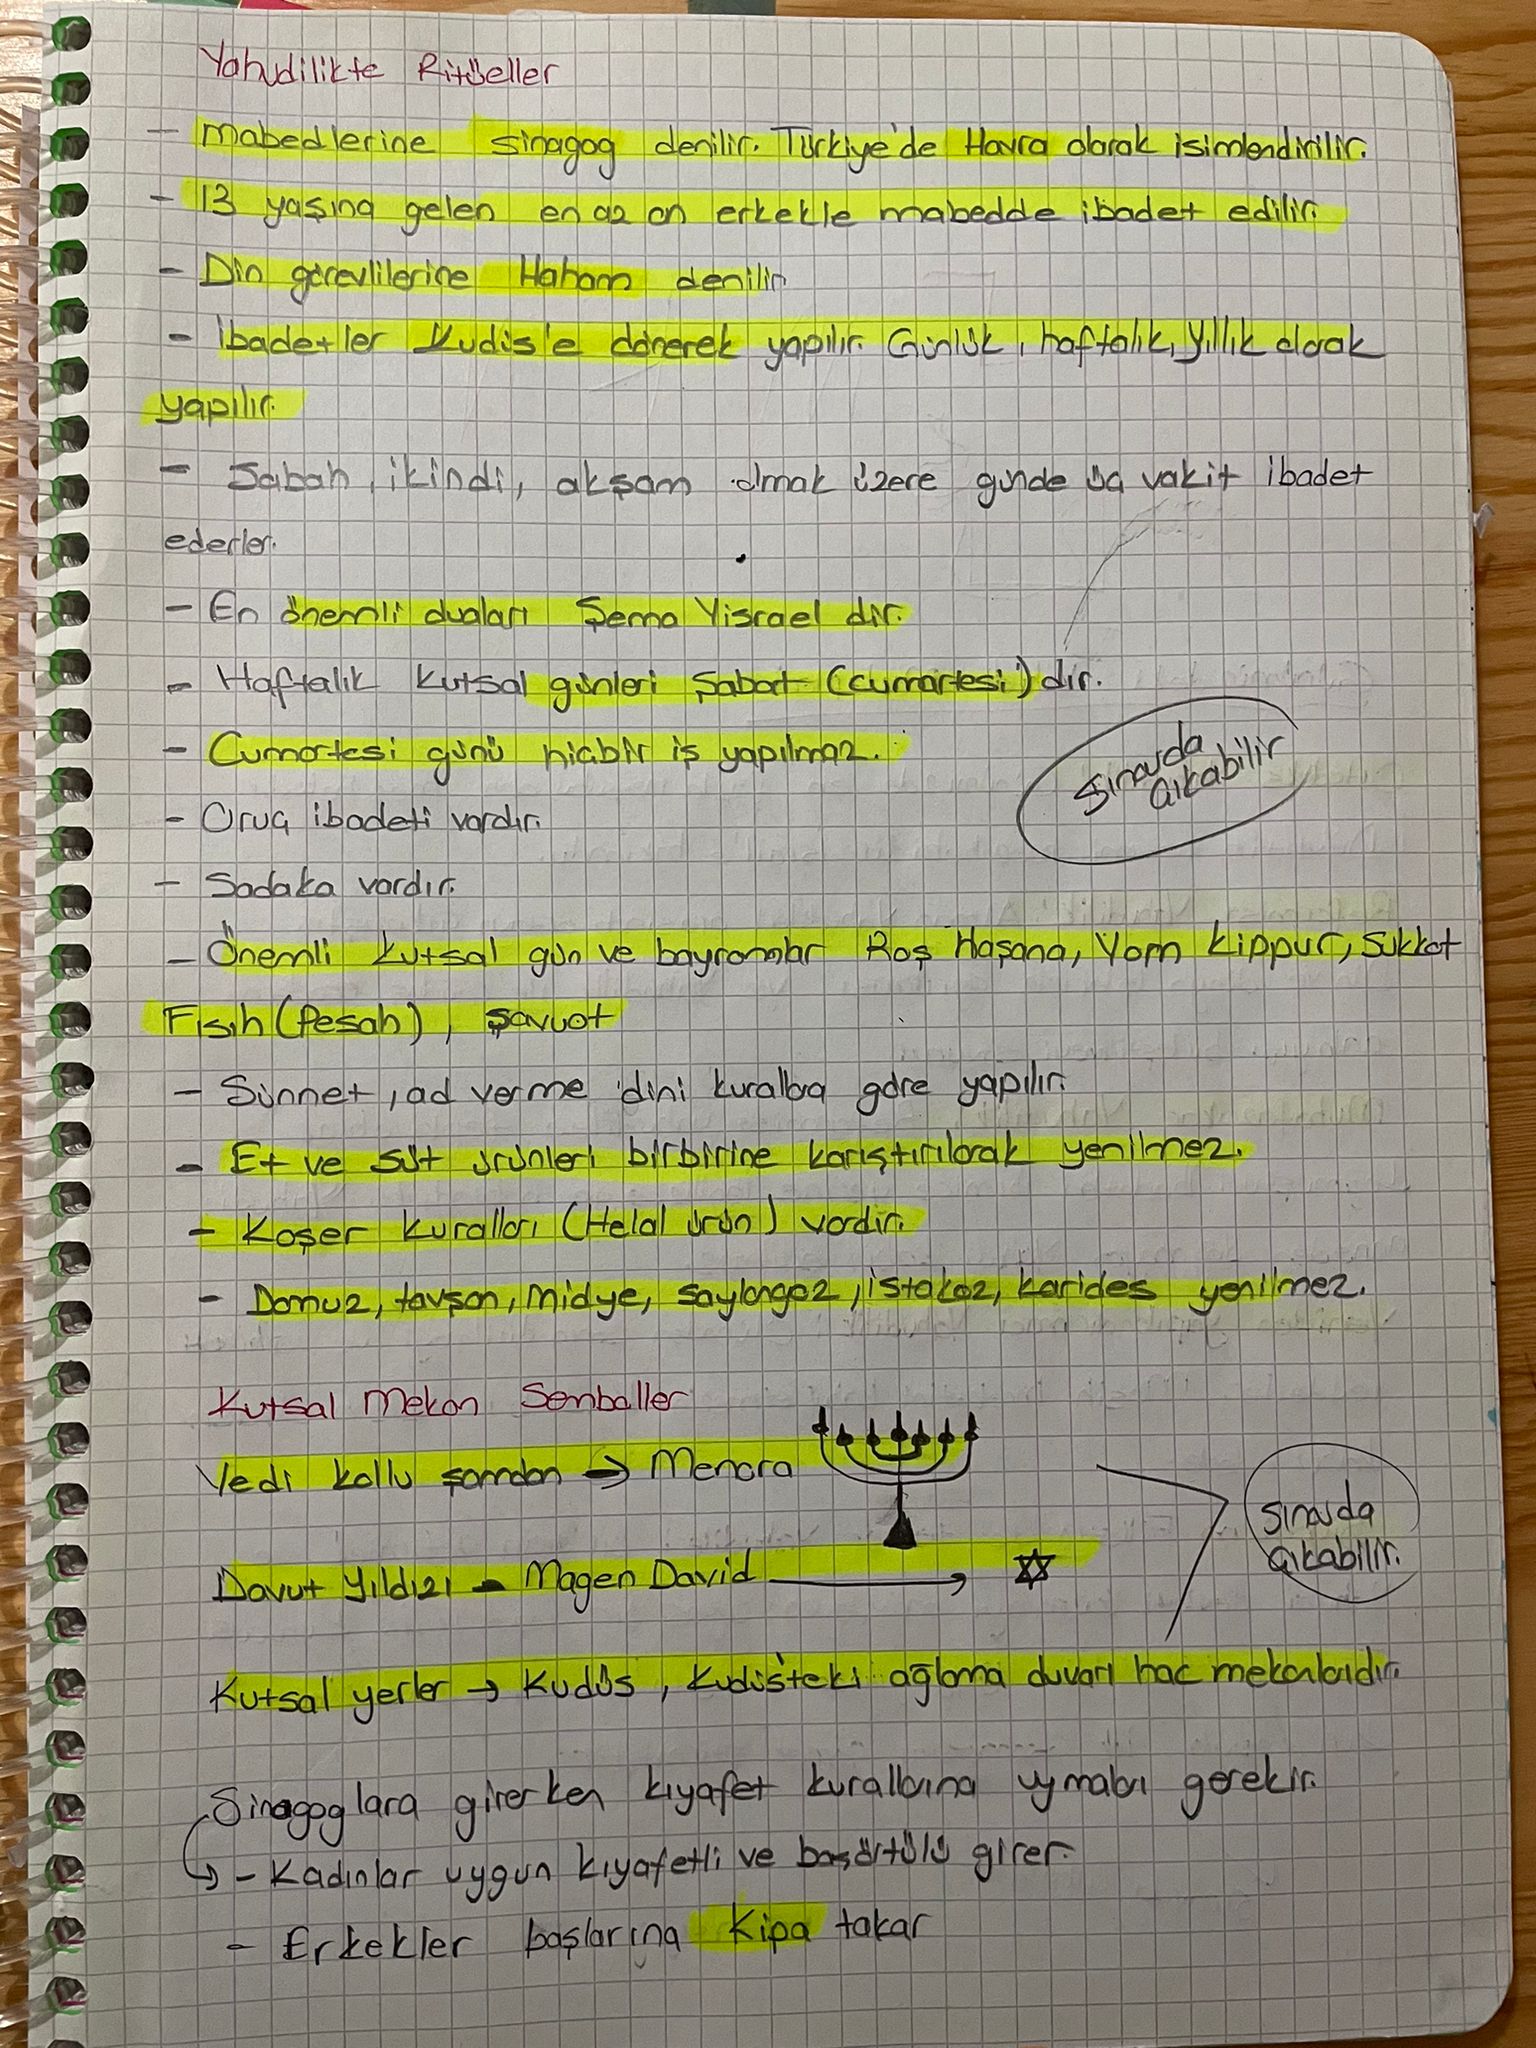 Yahudilikte Ritüeller
- Mabedlerine sinagog denilir. Türkiye'de Havra olarak isimlendirilir.
- 13 yaşına gelen en az on erkekle mabedde ibadet edilir.
- Din görevlilerine Haham denilir
- İbadetler Kudüs'e dönerek yapılır. Günlük, haftalık, yıllık olarak
yapılır.
- Sabah, ikindi, akşam olmak üzere günde üç vakit ibadet
ederler.
- En önemli duaları Şema Yisrael dir.
- Haftalık kutsal günleri Şabat (cumartesi) dir.
- Cumartesi günü hiçbir iş yapılmaz.
Sınavda
çıkabilir
- Oruç ibadeti vardır.
- Sadaka vardır.
- Önemli kutsal gün ve bayramlar Roş Haşana, Yom Kippur, Sukkot
Fısıh (Pesah), Şavuot
- Sünnet, ad verme dini kurallara göre yapılır.
- Et ve süt ürünleri birbirine karıştırılarak yenilmez.
- Koşer kuralları (Helal ürün) vardır.
- Domuz, tavşan, midye, saylangoz, istakoz, karides yenilmez.
Kutsal Mekan Semboller
Yedi kollu şamdan → Menora
Sınavda
çıkabilir.
Davut Yıldızı - Magen David
Kutsal yerler → Kudüs, Kudüsteki ağlama duvarı hac mekanlarıdır.
Sinagoglara girerken kıyafet kurallarına uymaları gerekir.
- Kadınlar uygun kıyafetli ve başörtülü girer.
- Erkekler başlarına Kipa takar